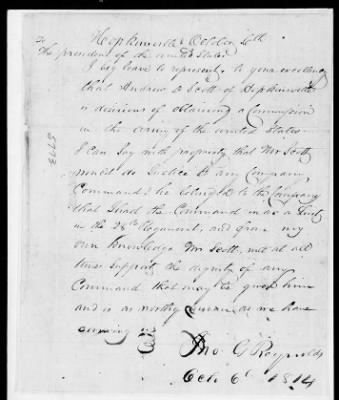 Hopkinsville October 6th
To
The president of the united States
I beg leave to represent to your excellency
that Andrew D Scott of Hopkinsville
is desirous of obtaining a Commission
in the army of the united States
I can Say with propriety that Mr Scott
would do Justice to any Company
Command. he belonged to the Company
that I had the Command in as a Lieut
in the 28th Regiment, and from my
own knowledge Mr Scott, will at all
times support the dignity of any
Command that may be given him
and is as worthy as we have
among us
Jno. G Reynolds
Oct. 6th 1814
5773